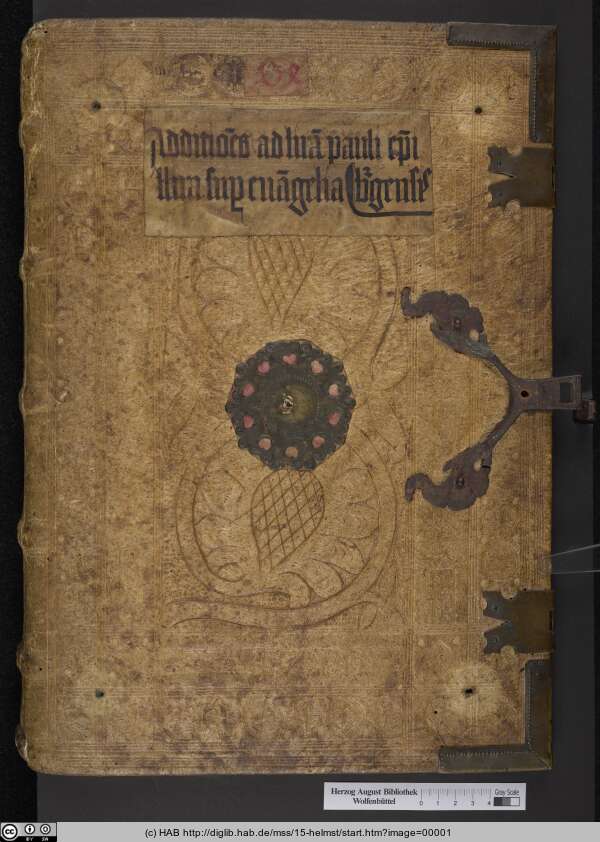 Additiões ad lirã pauli ep̃i
Itẽm sup euãgelia Bʒgensis
Herzog August Bibliothek
Wolfenbüttel
0 1 2 3 4
Gray Scale
cc BY SA
(c) HAB http://diglib.hab.de/mss/15-helmst/start.htm?image=00001